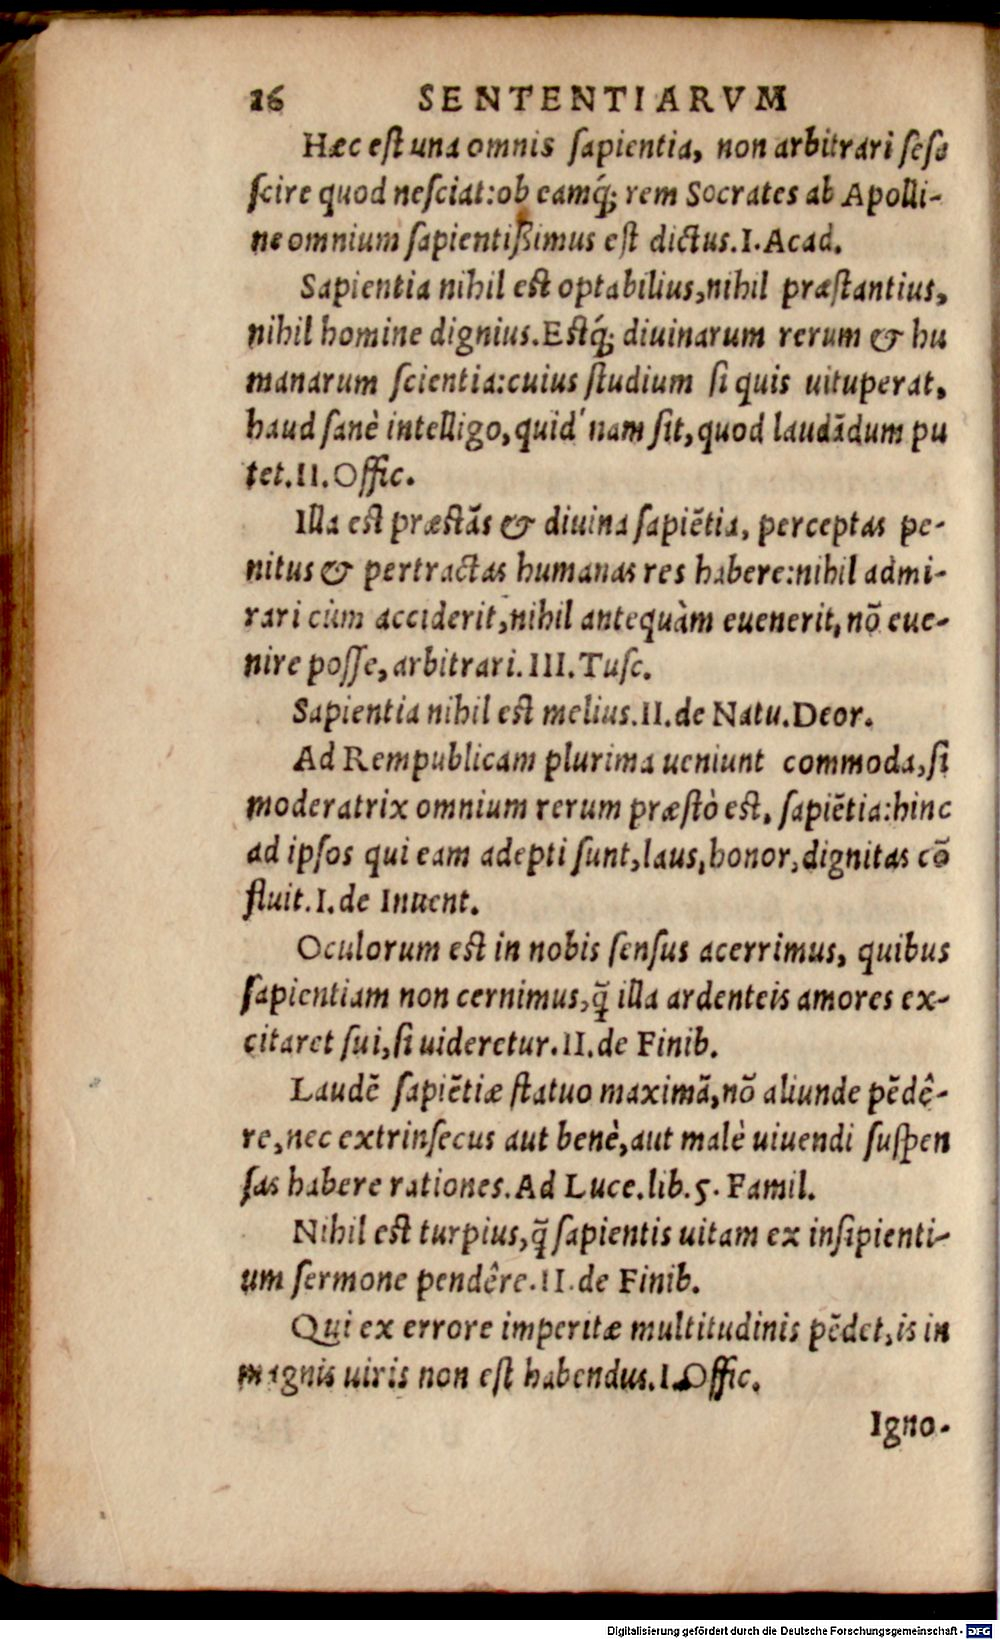 26 SENTENTIARVM
Hæc est una omnis sapientia, non arbitrari sese
scire quod nesciat:ob eamq́; rem Socrates ab Apolli-
ne omnium sapientißimus est dictus.I.Acad.
Sapientia nihil est optabilius,nihil præstantius,
nihil homine dignius.Estq́; diuinarum rerum & hu
manarum scientia:cuius studium si quis uituperat,
haud sanè intelligo,quid' nam sit,quod laudādum pu
tet.II.Offic.
Illa est præstās & diuina sapiētia, perceptas pe-
nitus & pertractas humanas res habere:nihil admi-
rari cùm acciderit,nihil antequàm euenerit,nō eue-
nire posse,arbitrari.III.Tusc.
Sapientia nihil est melius.II.de Natu.Deor.
Ad Rempublicam plurima ueniunt commoda,si
moderatrix omnium rerum præstò est, sapiētia:hinc
ad ipsos qui eam adepti sunt,laus,honor,dignitas cō
fluit.I.de Inuent.
Oculorum est in nobis sensus acerrimus, quibus
sapientiam non cernimus,q̄ illa ardenteis amores ex-
citaret sui,si uideretur.II.de Finib.
Laudē sapiētiæ statuo maximā,nō aliunde pēdê-
re,nec extrinsecus aut benè,aut malè uiuendi suspen
sas habere rationes.Ad Luce.lib.5.Famil.
Nihil est turpius,q̄ sapientis uitam ex insipienti-
um sermone pendêre.II.de Finib.
Qui ex errore imperitæ multitudinis pēdet,is in
magnis uiris non est habendus.I.Offic.
Igno-
Digitalisierung gefördert durch die Deutsche Forschungsgemeinschaft - DFG